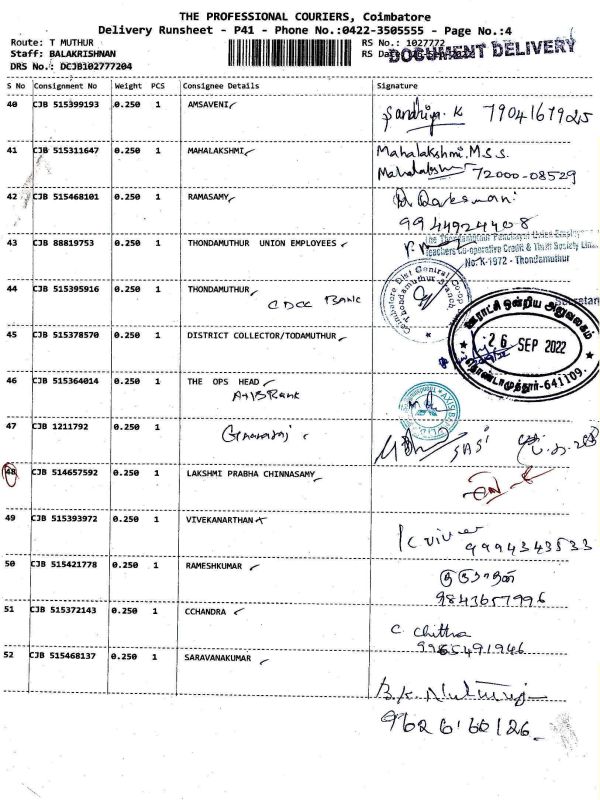 THE PROFESSIONAL COURIERS, Coimbatore
Delivery Runsheet - P41 - Phone No.:0422-3505555 - Page No.:4
Route: T MUTHUR RS No.: 1027772
Staff: BALAKRISHNAN RS Date:
DOCUMENT DELIVERY
DRS No.: DCJB102777204
S No Consignment No Weight PCS Consignee Details Signature
40 CJB 515399193 0.250 1 AMSAVENI Sandhiya. K 7904167925
41 CJB 515311647 0.250 1 MAHALAKSHMI Mahalakshmi.M.S.S.
Mahalakshmi 72000-08529
42 CJB 515468101 0.250 1 RAMASAMY
9944924408
43 CJB 88819753 0.250 1 THONDAMUTHUR UNION EMPLOYEES
The Thondamuthur Panchayat Union Employ
Teachers Co-operative Credit & Thrift Society Limi
No. K-1972 - Thondamuthur
Secretary
44 CJB 515395916 0.250 1 THONDAMUTHUR
CDCC BANK
Coimbatore Dist Central Co-op
Thondamuthur Branch
45 CJB 515378570 0.250 1 DISTRICT COLLECTOR/TODAMUTHUR
ஊராட்சி ஒன்றிய அலுவலகம்
26 SEP 2022
தொண்டாமுத்தூர்-641109.
46 CJB 515364014 0.250 1 THE OPS HEAD
AXIS Bank
AXIS BA
47 CJB 1211792 0.250 1
SASI
48 CJB 514657592 0.250 1 LAKSHMI PRABHA CHINNASAMY
49 CJB 515393972 0.250 1 VIVEKANARTHAN
9994343533
50 CJB 515421778 0.250 1 RAMESHKUMAR
9843657996
51 CJB 515372143 0.250 1 CCHANDRA C. Chitha
9965491946
52 CJB 515468137 0.250 1 SARAVANAKUMAR
9626160126